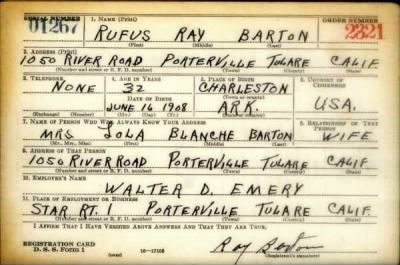 SERIAL NUMBER 1. NAME (Print) ORDER NUMBER
01267 RUFUS RAY BARTON 2321
(First) (Middle) (Last)
2. ADDRESS (Print)
1050 RIVER ROAD PORTERVILLE TULARE CALIF
(Number and street or R. F. D. number) (Town) (County) (State)
3. TELEPHONE 4. AGE IN YEARS 5. PLACE OF BIRTH 6. COUNTRY OF CITIZENSHIP
NONE 32 CHARLESTON
DATE OF BIRTH (Town or county)
JUNE 16 1908 ARK. USA.
(Exchange) (Number) (Mo.) (Day) (Yr.) (State or country)
7. NAME OF PERSON WHO WILL ALWAYS KNOW YOUR ADDRESS 8. RELATIONSHIP OF THAT PERSON
MRS LOLA BLANCHE BARTON WIFE
(Mr., Mrs., Miss) (First) (Middle) (Last)
9. ADDRESS OF THAT PERSON
1050 RIVER ROAD PORTERVILLE TULARE CALIF
(Number and street or R. F. D. number) (Town) (County) (State)
10. EMPLOYER'S NAME
WALTER D. EMERY
11. PLACE OF EMPLOYMENT OR BUSINESS
STAR RT. 1 PORTERVILLE TULARE CALIF.
(Number and street or R. F. D. number) (Town) (County) (State)
I AFFIRM THAT I HAVE VERIFIED ABOVE ANSWERS AND THAT THEY ARE TRUE.
REGISTRATION CARD
D. S. S. Form 1 (over) 16-17105 Ray Barton
(Registrant's signature)